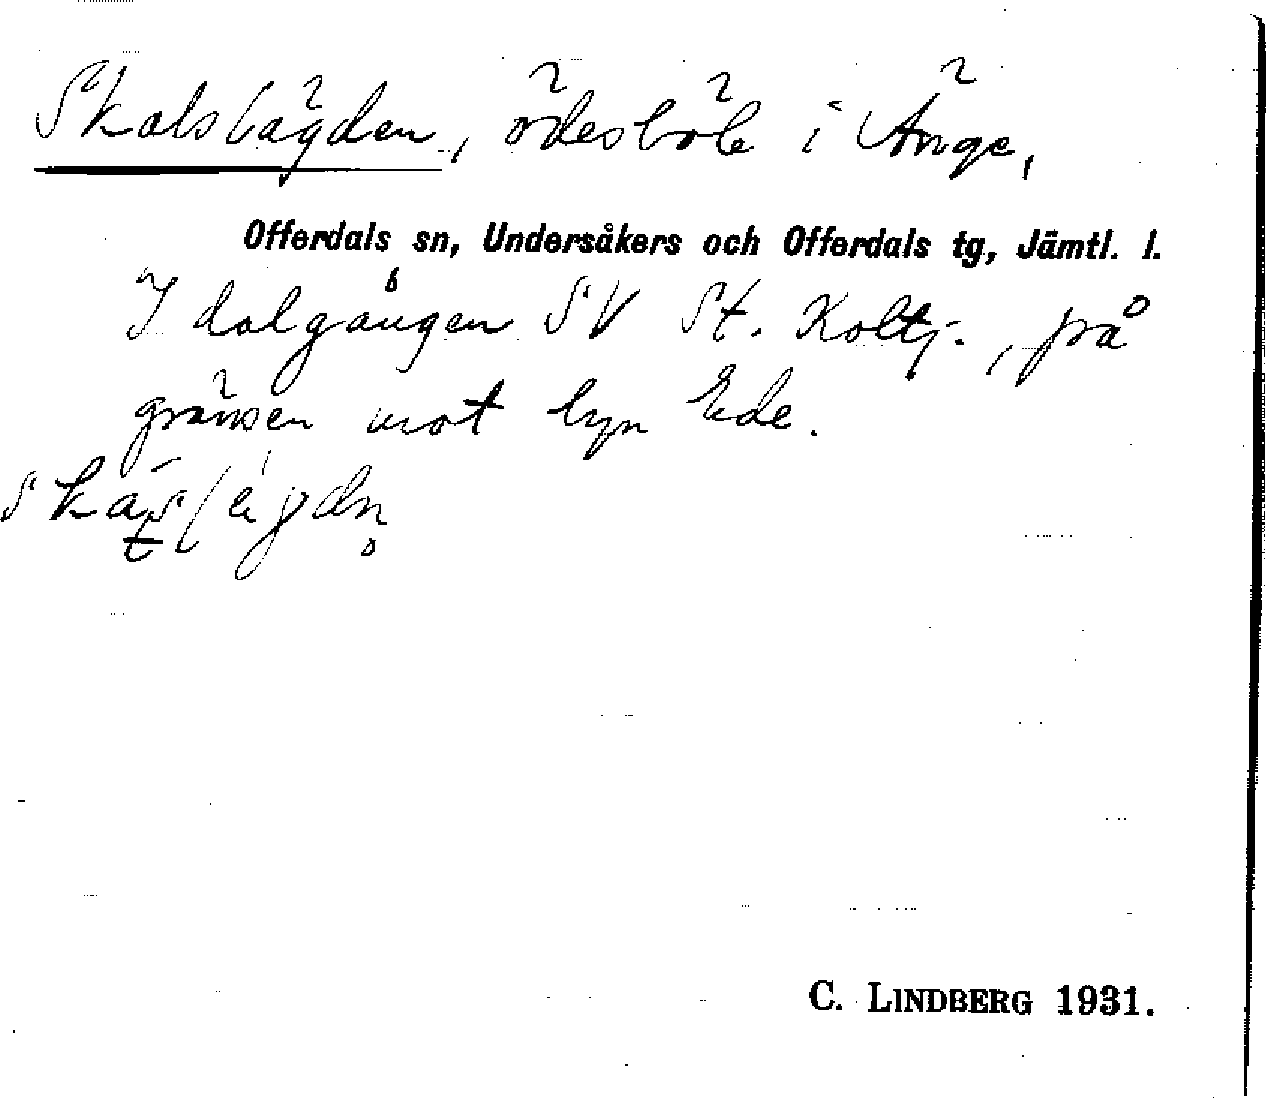 Skalslägden, ödesböle i Änge,
Offerdals sn, Undersåkers och Offerdals tg, Jämtl. l.
I dalgången SV St. Koltj., på
gränsen mot byn Ede.
C. LINDBERG 1931.